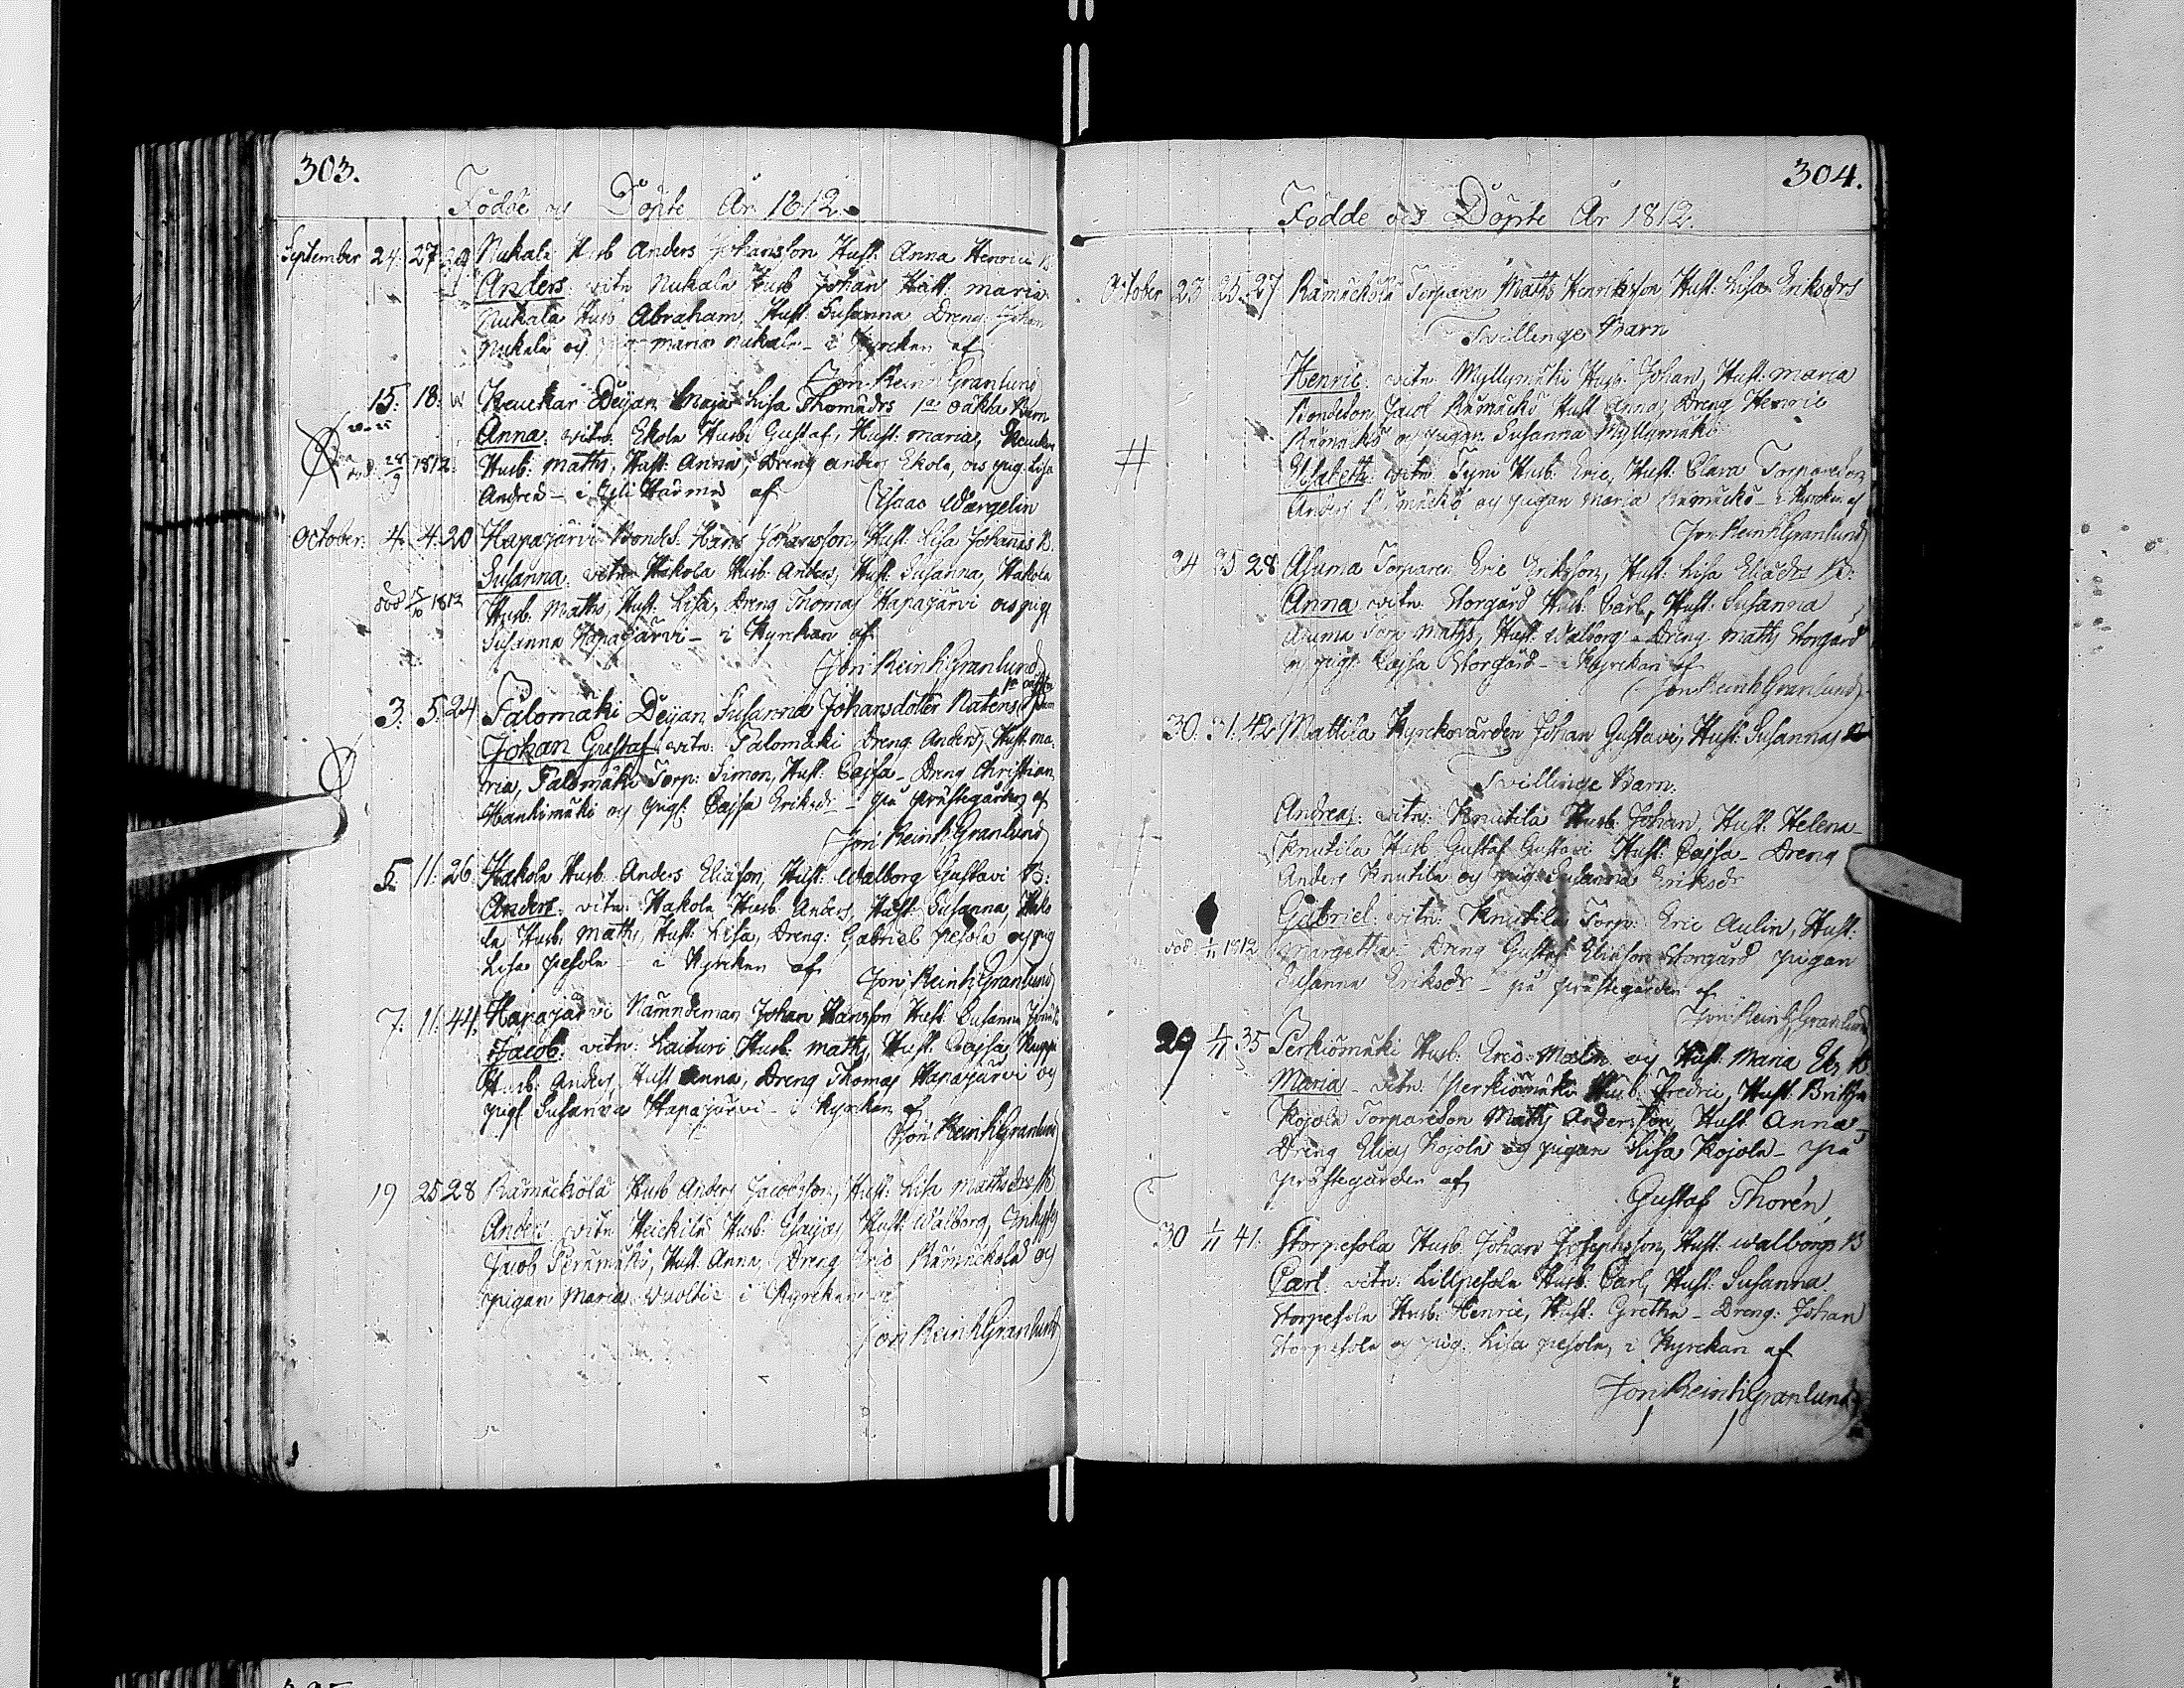 303.
Födde och Döpte År 1812.
September 24. 27 29 Nukala Husb Anders Johansson Hust: Anna Henrici B.
Anders. vitn Nukala Husb Johan Hust. maria
Nukala Husb Abraham, Hust: Susanna Dreng Johan
Nukala och maria nukala - i Kyrckan af
Jon: Reinh: Granlund
15. 18. Keuckar Deijan Maja Lisa Thomædrs 1a oäkta Barn
Anna. vitn: Ekola Husb: Gustaf, Hust: maria,
död 28/9 1812. Husb: maths, Hust: Anna, Dreng anders Ekola, och pig: Lisa
Andreæ - i af Isaac Wargelin
October. 4. 4. 20 Hapajärvi Bondes. Hans Johansson, Hust: Lisa Johannis B.
Susanna. vitn Hakola Husb. Anders, Hust: Susanna, Hakola
död 15/10 1812 Husb. Maths, Hust: Lisa, Dreng Thomas Hapajärvi och pig:
Susanna Hapajärvi - i Kyrkan af
Jon: Reinh: Granlund
1a oäkta
3. 5. 24 Palomäki Deijan Susanna Johansdotter Ratens Barn
Johan Gustaf. vitn: Palomäki Dreng Anders, Hust: ma-
ria, Palomäki Torp: Simon, Hust: Cajsa - Dreng Christian
Hankimäki och pig: Cajsa Eriksdr - på prästegården af
Jon: Reinh: Granlund
5. 11. 26. Hakola Husb. Anders Eliæson, Hust: Walborg Gustavi B:
Anders. vitn: Hakola Husb Anders, Hust: Susanna, Hako
la Husb: maths, Hust: Lisa, Dreng: Gabriel pesola och pig
Lisa pesola - i Kyrckan af Jon: Reinh: Granlund
7. 11. 44. Hapajärvi Nämndeman Johan Hansson Hust: Susanna
Jacob. vitn: Laituri Husb: maths, Hust: Cajsa,
Husb: Anders, Hust Anna, Dreng Thomas Hapajärvi och
pig: Susanna Hapajärvi - i Kyrckan af
Jon: Reinh: Granlund
19 25 28 Rämäckölä Husb Anders Jacobsson, Hust: Lisa Mathsdrs B
Anders. vitn Heickilä Husb: Esaias, Hust: Walborg,
Jacob Perämäki, Hust: Anna, Dreng Eric Rämäckölä och
pigan Maria i Kyrckan af
Jon: Reinh: Granlund
304.
Födde och Döpte År 1812.
October 23 25. 27 Rämäckölä Torparen Maths Henriksson Hust: Lisa Eriksdrs
Tvillinge Barn
Henric: vitn: Myllymäki Husb: Johan, Hust: maria
Bondeson Jacob Rämäckö Hust Anna, Dreng Henric
# Rämäckö och pigan Susanna Myllymäki
Elisabeth. vitn: Husb: Eric, Hust: Clara Torpareson
Anders Rämäckö och pigan Maria Rämäckö - i Kyrckan af
Jon: Reinh: Granlund
24 25 28 Asuma Torparen Eric Eriksson, Hust: Lisa Eliædrs B:
Anna. vitn: Storgård Husb: Carl, Hust: Susanna
Asuma Torp Maths, Hust: Walborg - Dreng maths Storgård
och pig: Cajsa Storgård - i Kyrckan af
Jon: Reinh: Granlund
30. 31. 42 Mattila Kyrckovärden Johan Gustavi, Hust: Susannas
Tvillinge Barn.
Andreas: vitn: Knutila Husb. Johan, Hust: Helena -
Knutila Husb Gustaf Gustavi Hust: Cajsa - Dreng
Anders Knutila och pig: Susanna Eriksdr
Gabriel: vitn: Knutila Torp: Eric Aulin, Hust:
död 1812 Margetha - Dreng Gustaf Eliæson Storgård pigan
Susanna Eriksdr - på prästegården af
Jon: Reinh: Granlund
29 1/11 35 Perkiömäki Husb: Eric Malm och Hust: Maria B
Maria - vitn: Perkiömäki Husb: Fredric, Hust: Britha
Kojola Torpareson Maths Andersson, Hust: Anna -
Dreng Elias Kojola och pigan Lisa Kojola - på
prästegården af
Gustaf Thorén
30 1/11 41. Storpesola Husb: Johan Josephsson, Hust: walborgs B
Carl. vitn: Lillpesola Husb: Carl, Hust: Susanna
Storpesola Husb: Henric, Hust: Gretha - Dreng: Johan
Storpesola och pig: Lisa pesola, i Kyrckan af
Jon: Reinh: Granlund